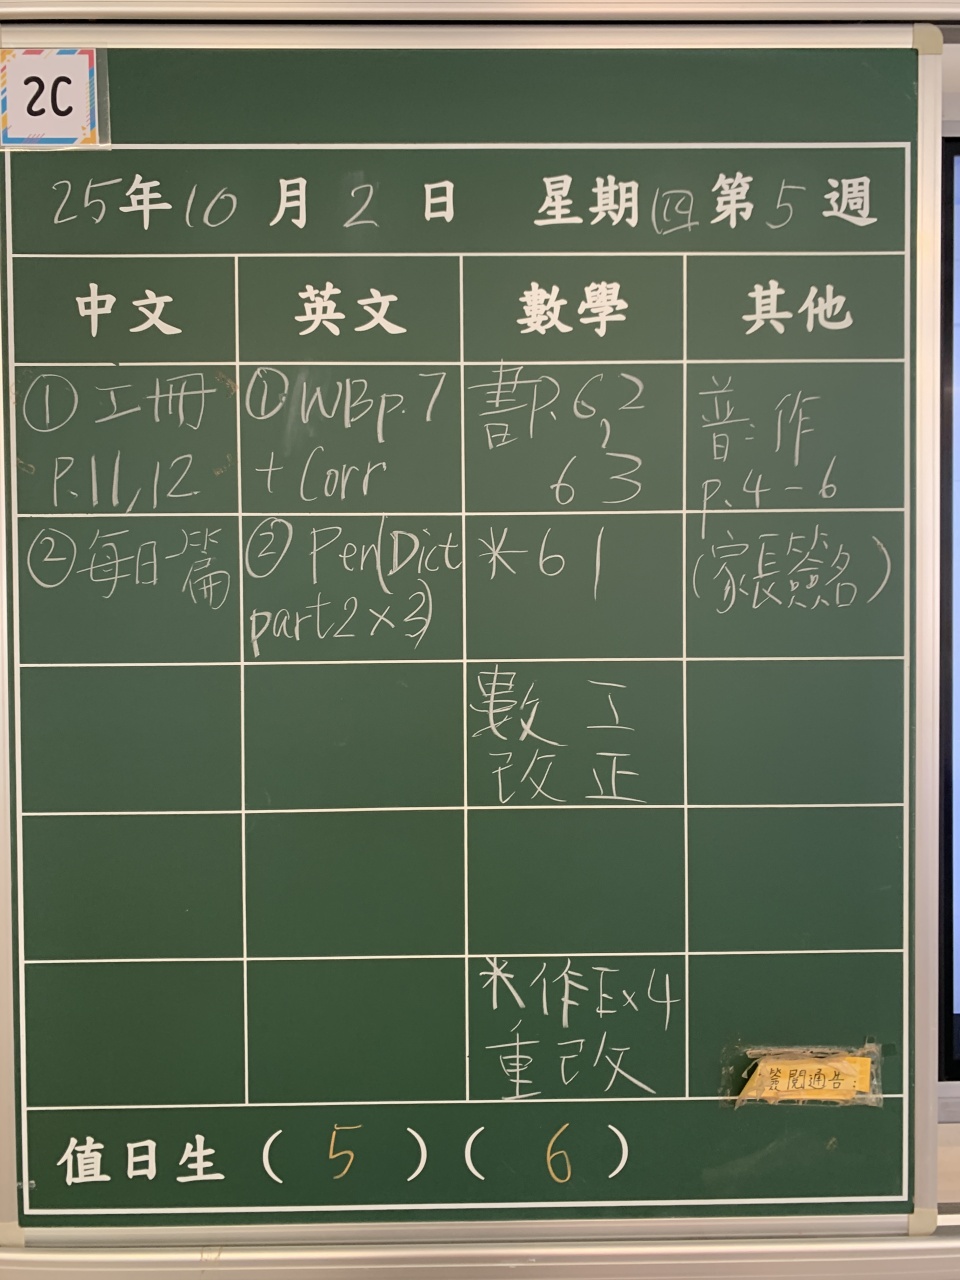 2C
25年10月2日 星期四第5週
中文 英文 數學 其他
①工冊
P.11,12
②每日一篇
①WBp.7
+ Corr
② Pen(Dict
part2×3)
書P.62,
63
*61
數工
改正
*作Ex4
重改
普:作
p.4-6
(家長簽名)
簽閱通告:
值日生(5)(6)